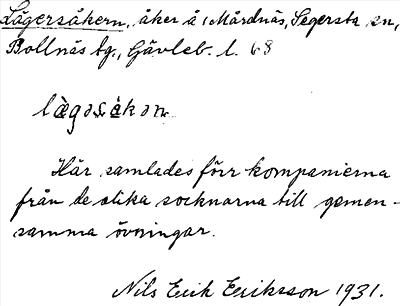 Lägersåkern, åker å Mårdnäs, Segersta sn,
Bollnäs tg., Gävleb. l. 68
lägosåkan
Här samlades förr kompanierna
från de olika socknarna till gemen-
samma övningar.
Nils Erik Eriksson 1931.